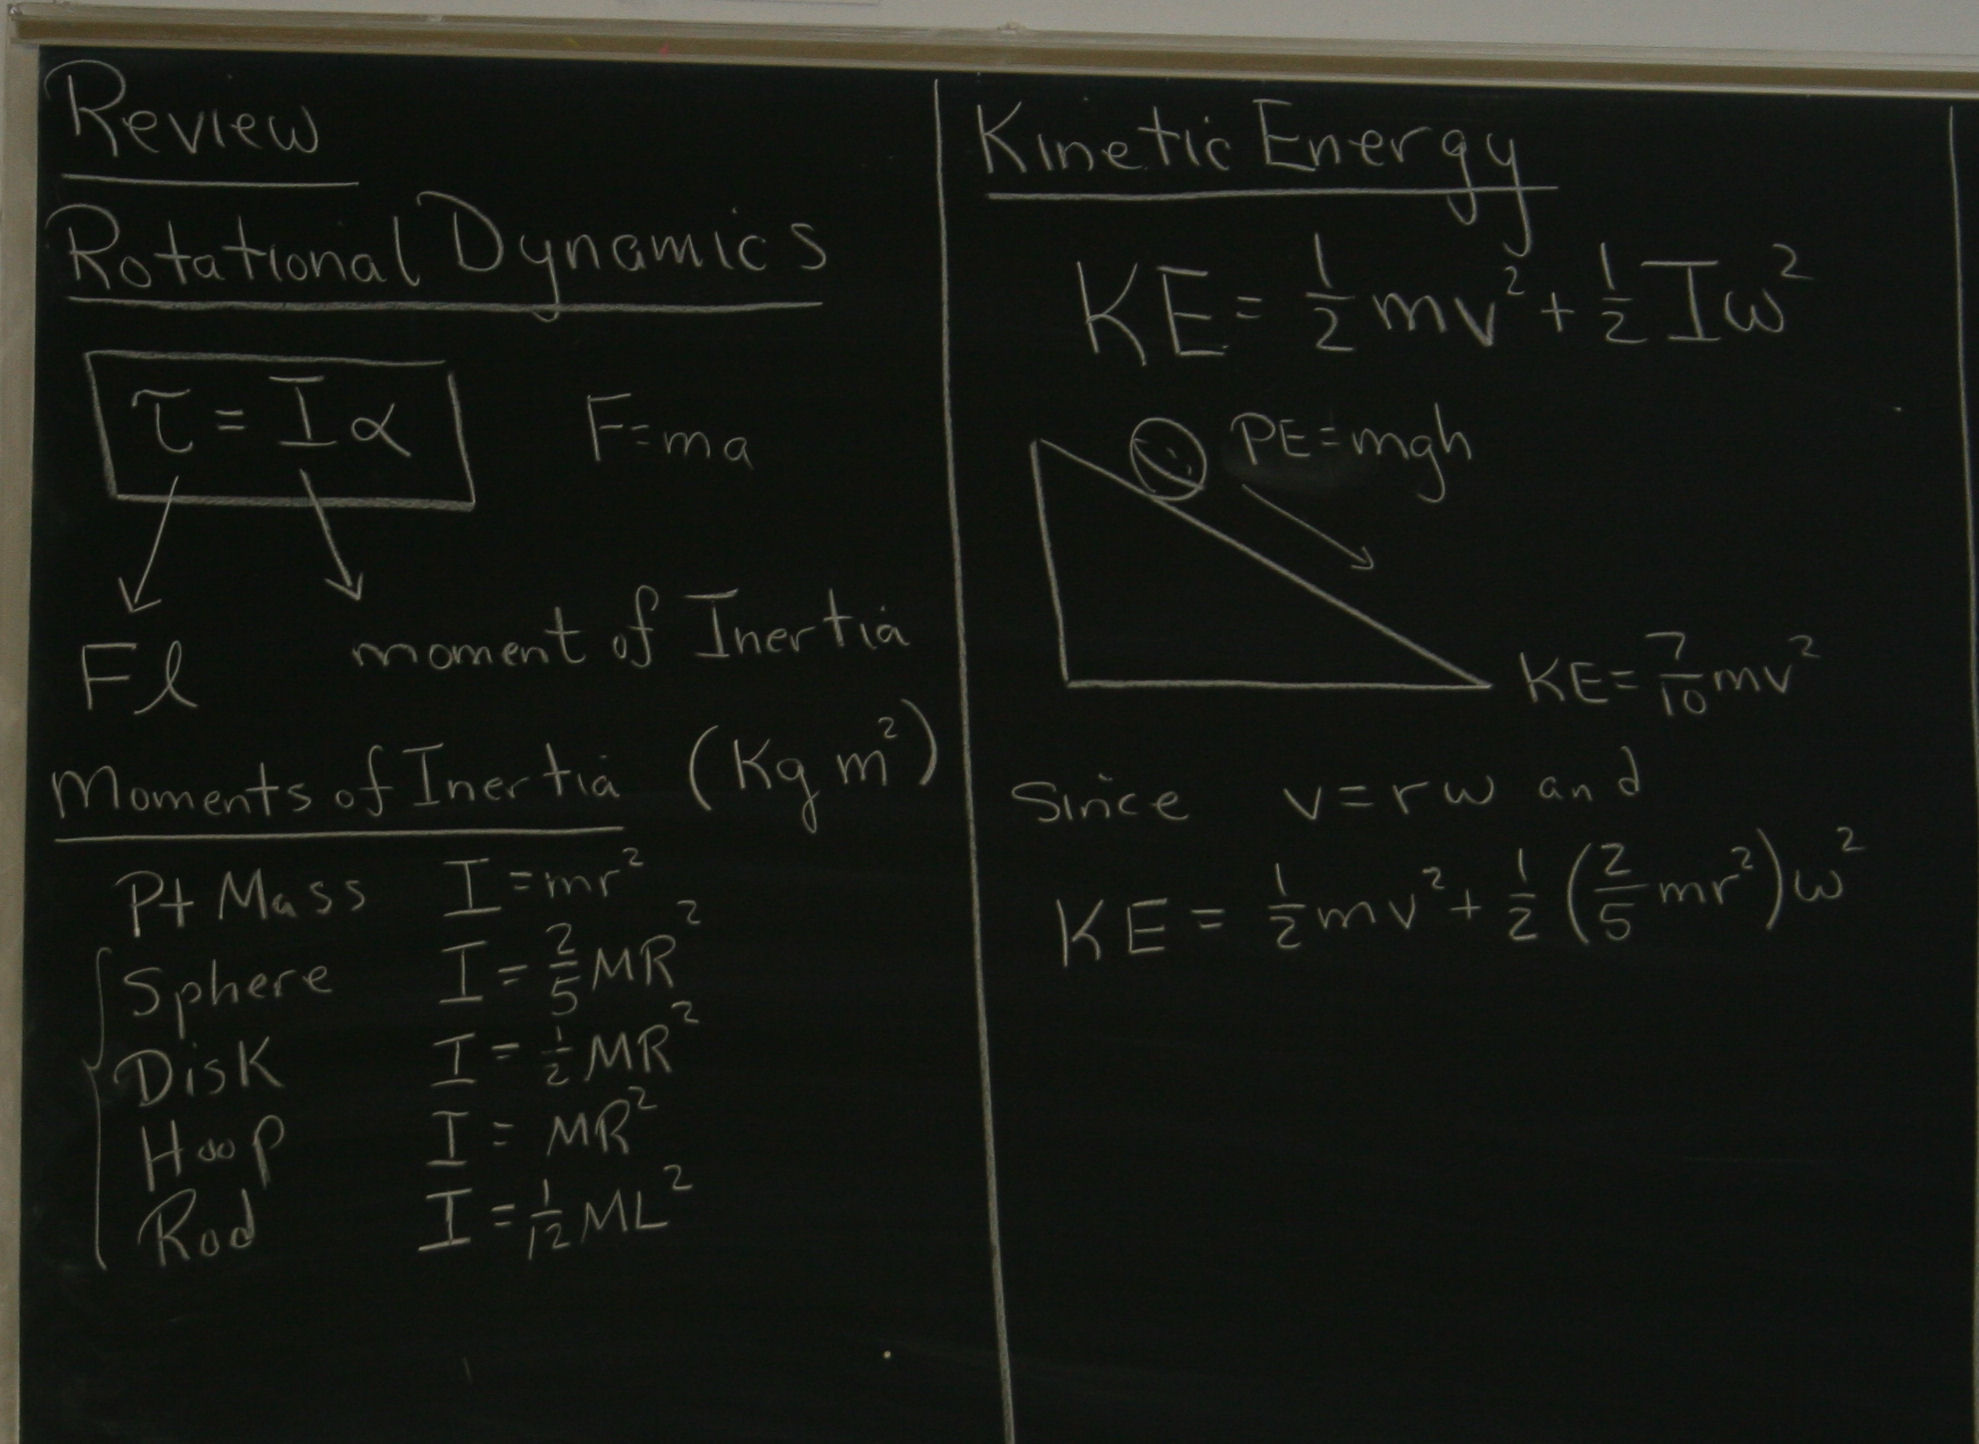 Review
Rotational Dynamics
τ = Iα
F=ma
Fl
moment of Inertia
Moments of Inertia (Kg m²)
Pt Mass I = mr²
Sphere I = 2/5 MR²
Disk I = 1/2 MR²
Hoop I = MR²
Rod I = 1/12 ML²
Kinetic Energy
KE = 1/2 mv² + 1/2 Iω²
PE=mgh
KE = 7/10 mv²
Since v = rω and
KE = 1/2 mv² + 1/2 (2/5 mr²) ω²